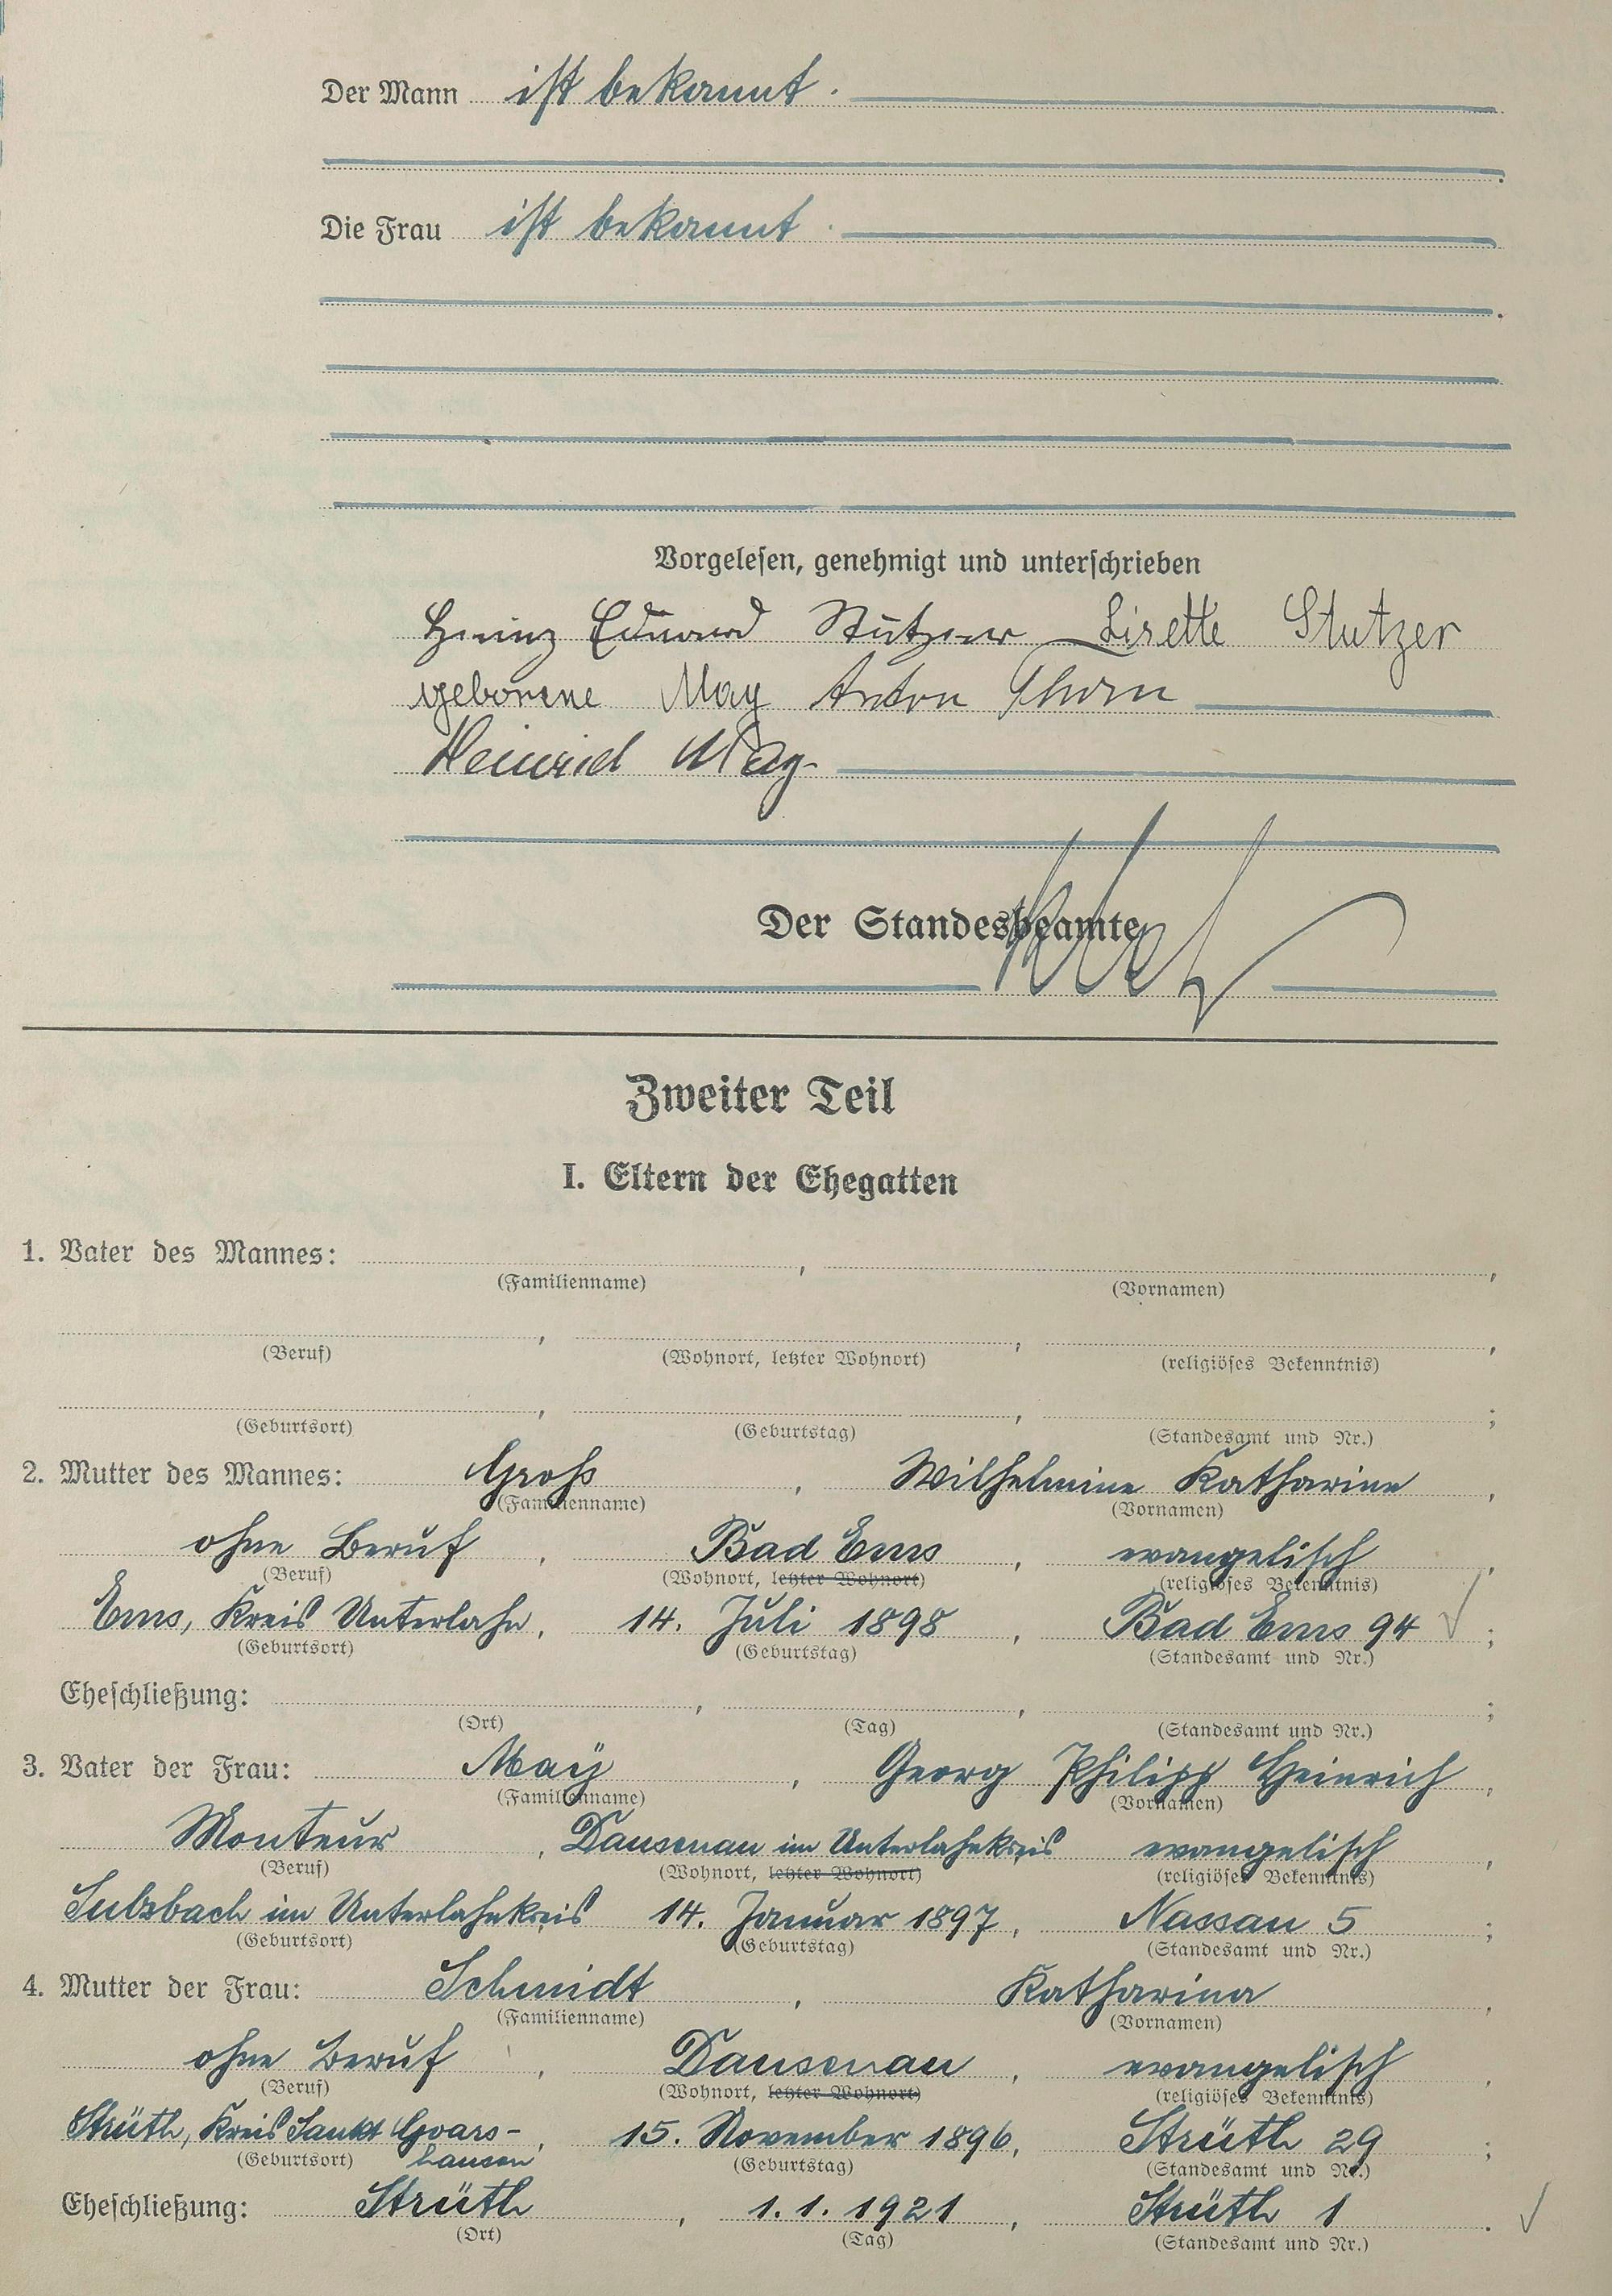 Der Mann ist bekannt.
Die Frau ist bekannt.
Vorgelesen, genehmigt und unterschrieben
Heinz Eduard Stutzer Lisette Stutzer
geborene May Anton Thorn
Heinrich May
Der Standesbeamte
Zweiter Teil
I. Eltern der Ehegatten
1. Vater des Mannes: , ,
(Familienname) (Vornamen)
, , ,
(Beruf) (Wohnort, letzter Wohnort) (religiöses Bekenntnis)
, , ;
(Geburtsort) (Geburtstag) (Standesamt und Nr.)
2. Mutter des Mannes: Groß , Wilhelmine Katharine ,
(Familienname) (Vornamen)
ohne Beruf , Bad Ems , evangelisch ,
(Beruf) (Wohnort, letzter Wohnort) (religiöses Bekenntnis)
Ems, Kreis Unterlahn, 14. Juli 1898 , Bad Ems 94 ;
(Geburtsort) (Geburtstag) (Standesamt und Nr.)
Eheschließung: , , ;
(Ort) (Tag) (Standesamt und Nr.)
3. Vater der Frau: Maÿ , Georg Philipp Heinrich ,
(Familienname) (Vornamen)
Monteur , Dausenau im Unterlahnkreis evangelisch ,
(Beruf) (Wohnort, letzter Wohnort) (religiöses Bekenntnis)
Sulzbach im Unterlahnkreis 14. Januar 1897, Nassau 5 ;
(Geburtsort) (Geburtstag) (Standesamt und Nr.)
4. Mutter der Frau: Schmidt , Katharina ,
(Familienname) (Vornamen)
ohne Beruf , Dausenau , evangelisch ,
(Beruf) (Wohnort, letzter Wohnort) (religiöses Bekenntnis)
Strüth, Kreis Sankt Goars- , 15. November 1896, Strüth 29 ;
(Geburtsort) hausen (Geburtstag) (Standesamt und Nr.)
Eheschließung: Strüth , 1. 1. 1921 , Strüth 1 .
(Ort) (Tag) (Standesamt und Nr.)